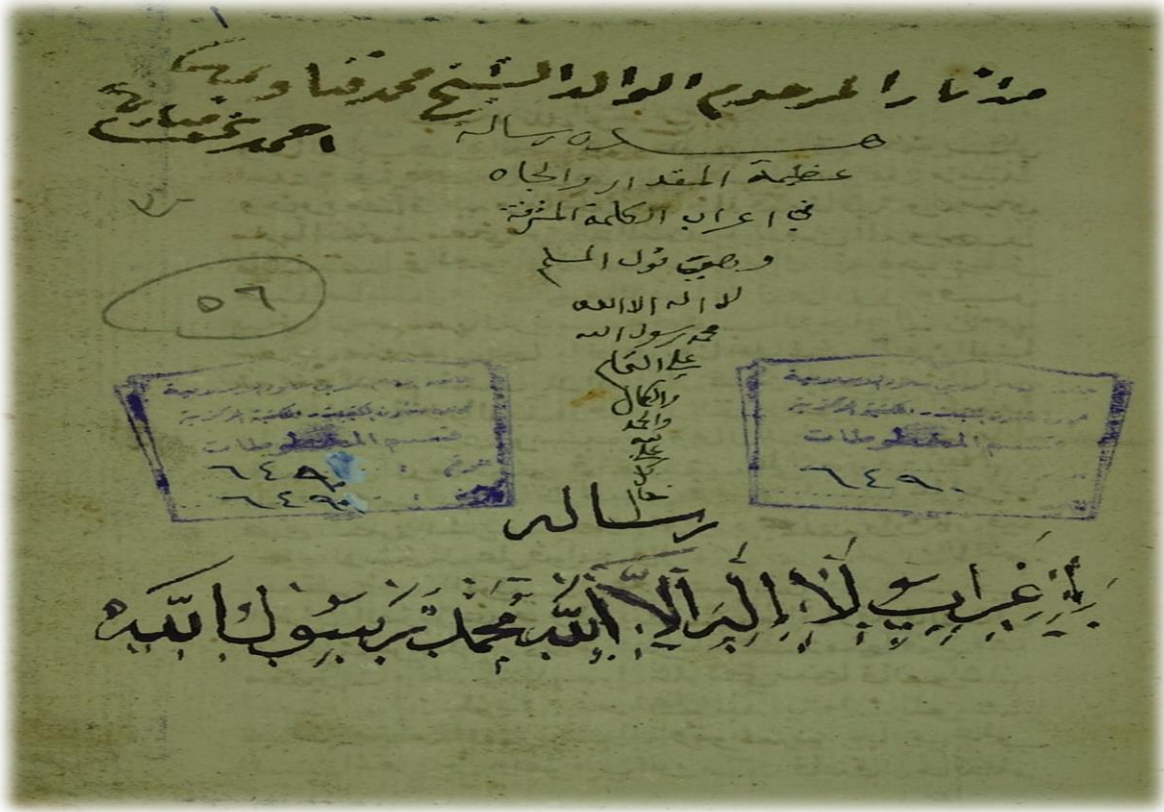 ١
من آثار المرحوم الوالد الشيخ محمد قناوي
احمد قناوي
هذه رسالة
عظيمة المقدار والجاه
في اعراب الكلمة المشرفة
وهي قول المسلم
لا اله الا الله
محمد رسول الله
على التمام
والكمال
والحمد
لله
على
كل
حال
٥٦
قسم المخطوطات
٦٤٩٠
قسم المخطوطات
٦٤٩٠
٦٤٩٠
رسالة
في إعراب لا إله إلا الله محمد رسول الله